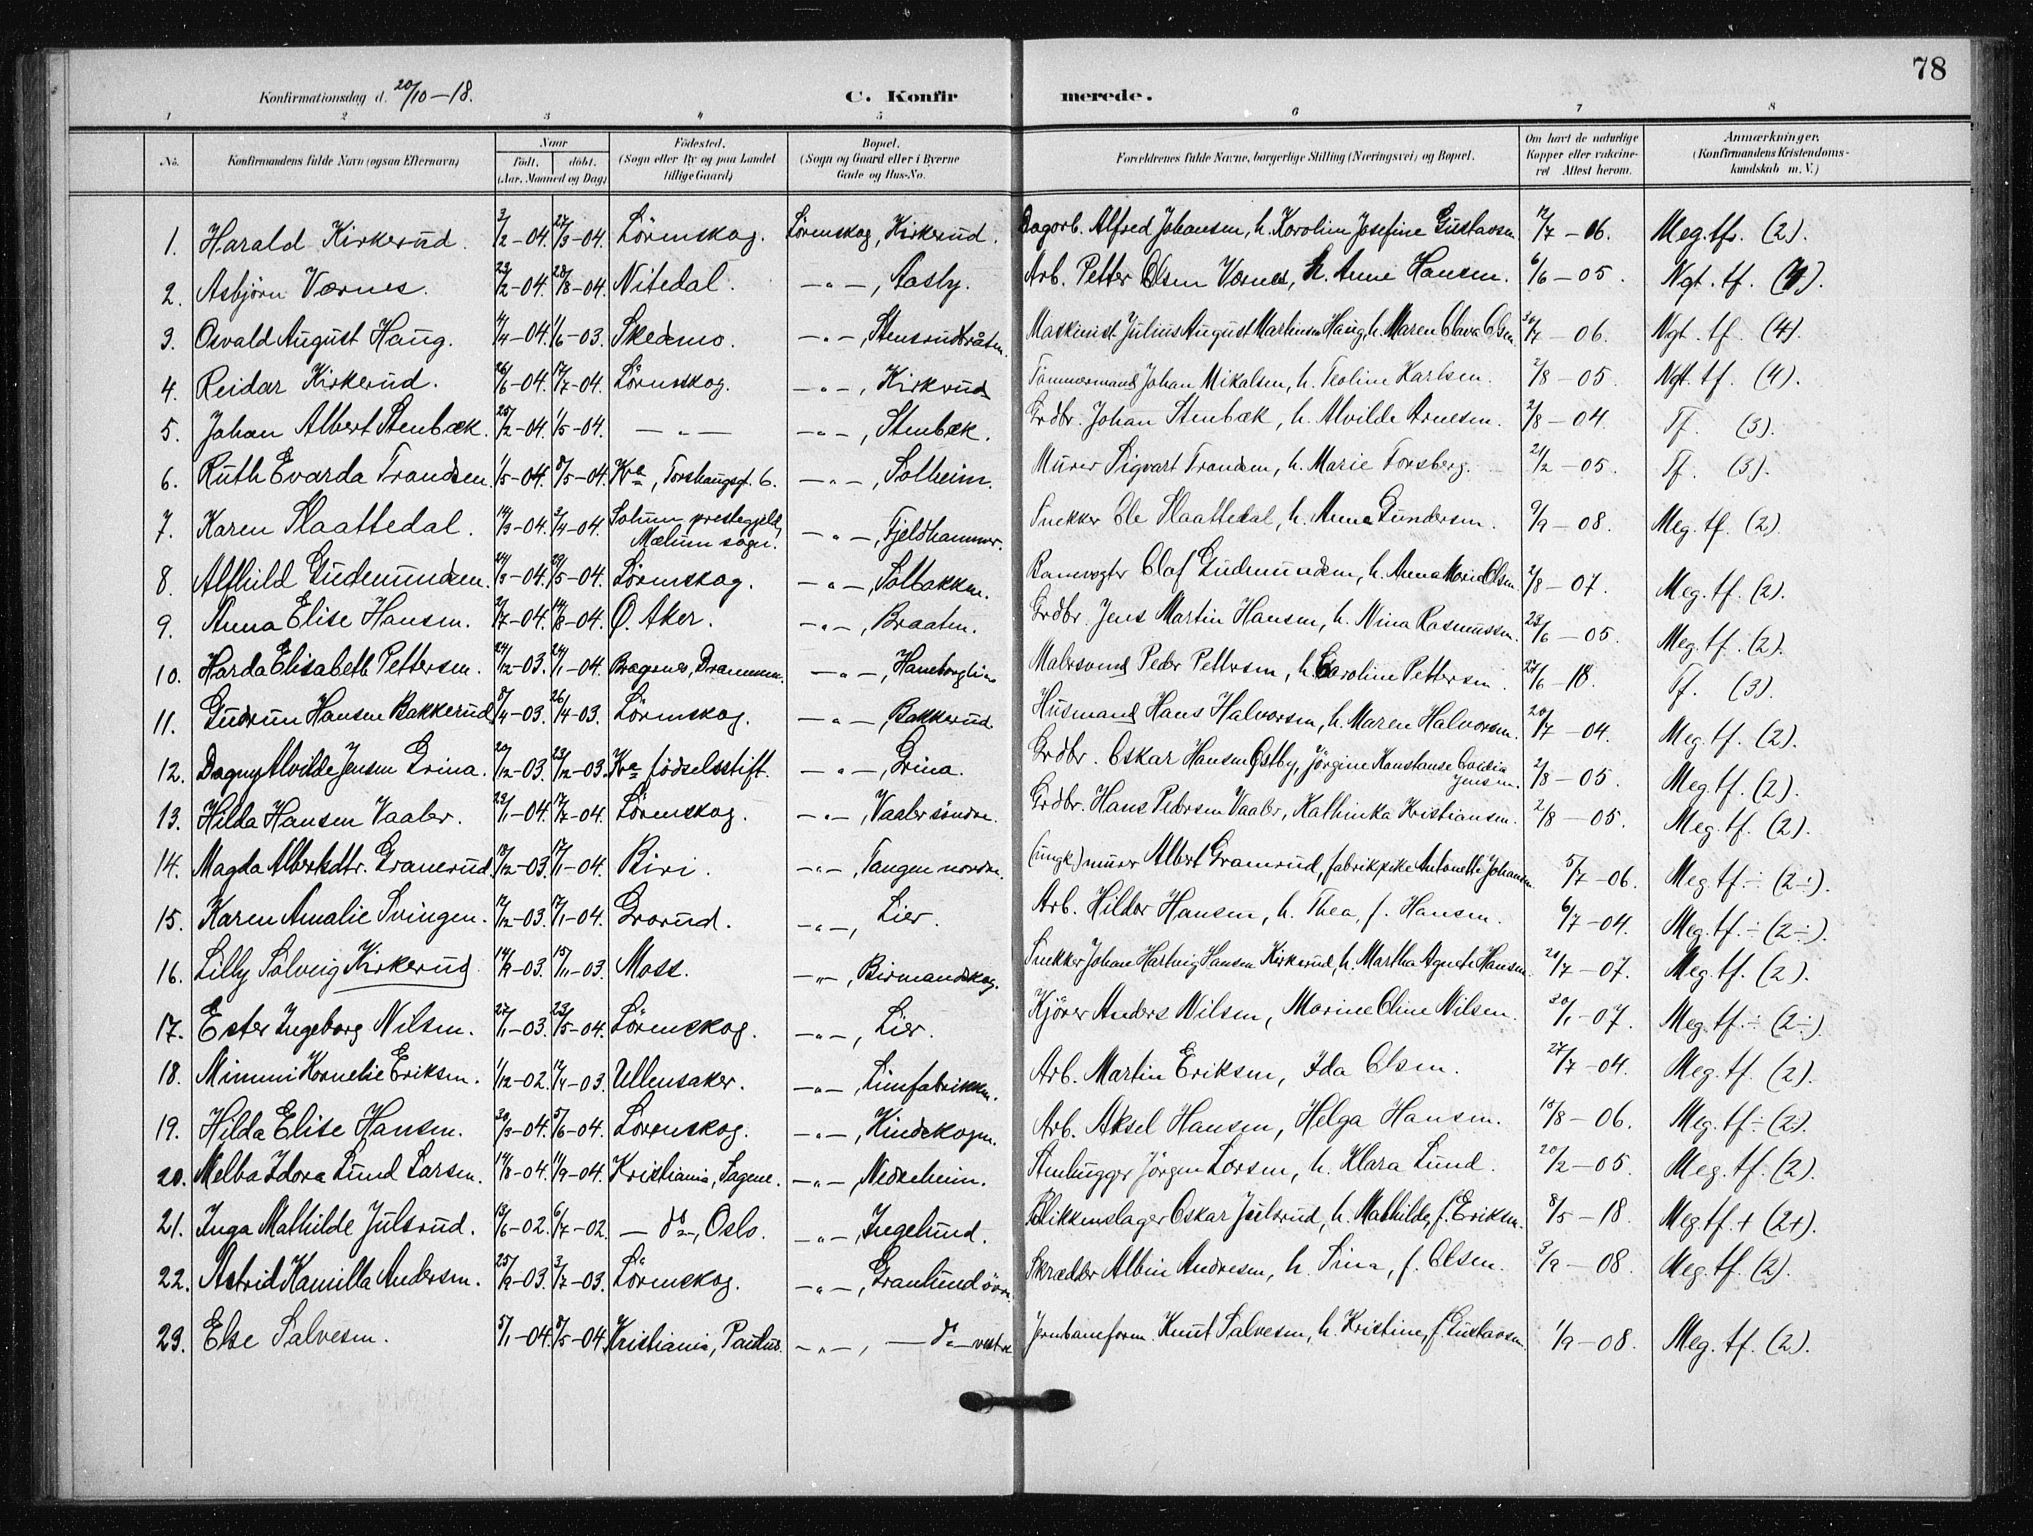 78
Konfirmationsdag d. 20/10 – 18. C. Konfirmerede.
1 2 3 4 5 6 7 8
No. Konfirmandens fulde Navn (ogsaa Efternavn) Naar født, døbt. (Aar, Maaned og Dag) Fødested. (Sogn eller By og paa Landet tillige Gaard) Bopæl. (Sogn og Gaard eller i Byerne Gade og Hus-No. Forældrenes fulde Navne, borgerlige Stilling (Næringsvei) og Bopæl. Om havt de naturlige Kopper eller vakcineret Attest herom. Anmærkninger. (Konfirmandens Kristendomskundskab m. V.)
1. Harald Kirkerud. 3/2–04. 27/3–04. Lörenskog. Lörenskog, Kirkerud. Dagarb. Alfred Johansen, h. Karoline Josefine Gustavsen 12/7 – 06. Meg. tfr. (2).
2. Asbjörn Værnes. 23/2–04. 28/8–04. Nitedal. —"—, Aasby. Arb. Petter Olsen Værnes, h. Anne Hansen. 6/6 – 05. Ngt. tf. (4).
3. Osvald August Haug. 4/4–04. 1/6–03. Skedsmo. —"—, Stensrudbråten. Maskinist Julius August Martinsen Haug, h. Maren Olava Olsen 30/7 – 06. Ngt. tf. (4).
4. Reidar Kirkerud. 26/6–04. 17/7–04. Lörenskog. —"—, Kirkerud Tömmermand Johan Mikalsen, h. Teoline Karlsen. 2/8 – 05. Ngt. tf. (4).
5. Johan Albert Stenbæk. 25/2–04. 1/5–04. —"— —"—, Stenbæk. Grdbr. Johan Stenbæk, h. Alvilde Arnesen. 2/8 – 04. Tf. (3).
6. Ruth Evarda Trandsen. 1/5–04. 8/5–04. Kra, Torshaugsgt. 6. —"—, Solheim. Murer Sigvart Trandsen, h. Marie Forsberg. 21/2 – 05. Tf. (3).
7. Karen Slaattedal. 14/3–04. 3/4–04. Solum prestegjeld, Mælum sogn. —"—, Fjeldhammer. Snekker Ole Slaattedal, h. Anne Gundersen. 9/9 – 08. Meg. tf. (2)
8. Alfhild Gudmundsen. 24/3–04. 23/5–04. Lörenskog. —"—, Solbakken. Banevogter Olaf Gudmundsen, h. Anna Marie Olsen 2/8 – 07. Meg. tf. (2).
9. Anna Elise Hansen. 2/7–04. 14/8–04. Ö. Aker. —"—, Braaten. Grdbr. Jens Martin Hansen, h. Nina Rasmussen. 23/6 – 05. Meg. tf. (2).
10. Harda Elisabeth Pettersen. 24/12–03. 24/1–04. Bragenes, Drammen. —"—, Haneborglien Malersvend Peder Pettersen, h. Caroline Pettersen. 27/6 – 18. Tf. (3).
11. Gudrun Hansen Bakkerud 8/4–03. 26/4–03. Lörenskog. —"—, Bakkerud Husmand Hans Halvorsen, h. Maren Halvorsen. 20/7 – 04. Meg. tf. (2).
12. Dagny Alvilde Jensen Grina. 20/12–03. 23/12–03. Kra födselsstift. —"—, Grina. Grdbr. Oskar Hansen Östby, Jörgine Konstanse Jensen. 2/8 – 05. Meg. tf. (2).
13. Hilda Hansen Vaaler. 23/1–04. 17/7–04. Lörenskog. —"—, Vaaler söndre. Grdbr. Hans Pedersen Vaaler, Kathinka Kristiansen. 2/8 – 05. Meg. tf. (2).
14. Magda Albertsdtr. Granerud. 18/12–03. 17/1–04. Biri. —"—, Tangen nordre. (ungk.) murer Albert Granerud, fabrikpike Antonette Johansen 5/7 – 06. Meg. tf. ÷ (2÷).
15. Karen Amalie Svingen. 12/12–03. 17/1–04. Grorud. —"—, Lier. Arb. Hildor Hansen, h. Thea, f. Hansen. 6/7 – 04. Meg. tf. ÷ (2÷).
16. Lilly Solveig Kirkerud. 14/9–03. 15/11–03. Moss. —"—, Birmandskog. Snekker Johan Hartvig Hansen Kirkerud, h. Martha Agnete Hansen. 24/7 – 07. Meg. tf. (2).
17. Ester Ingeborg Nilsen. 27/1–03. 23/5–04. Lörenskog. —"—, Lier. Kjörer Anders Nilsen, Marine Oline Nilsen. 30/1 – 07. Meg. tf. ÷ (2÷)
18. Mimmi Kornelie Eriksen. 1/12–02. 17/4–03. Ullensaker. —"—, Limfabrikken. Arb. Martin Eriksen, Ida Olsen. 27/7 – 04. Meg. tf. (2).
19. Hilda Elise Hansen. 30/3–04. 5/6–04. Lörenskog. —"—, Kindskogen. Arb. Aksel Hansen, Helga Hansen. 15/8 – 06. Meg. tf ÷ (2÷).
20. Melba Idora Lund Larsen. 14/8–04. 11/9–04. Kristiania, Sagene. —"—, Nedreheim. Stenhugger Jörgen Larsen, h. Klara Lund. 20/2 – 05. Meg. tf. (2).
21. Inga Mathilde Julsrud. 13/6–02. 6/7–02. — do —, Oslo. —"—, Ingelund. Blikkenslager Oskar Julsrud, h. Mathilde, f. Eriksen. 8/5 – 18. Meg tf. + (2+).
22. Astrid Kamilla Andersen. 25/2–03. 3/7–03. Lörenskog. —"—, Granlund övre. Skrædder Albin Andresen, h. Lina, f. Olsen. 3/9 – 08. Meg. tf. (2).
23. Else Salvesen. 5/1–04. 8/5–04. Kristiania, Paulus. —"—, — do — vestre Jernbaneform. Knut Salvesen, h. Kristine, f. Gustavsen 1/9 – 08. Meg. tf. (2).